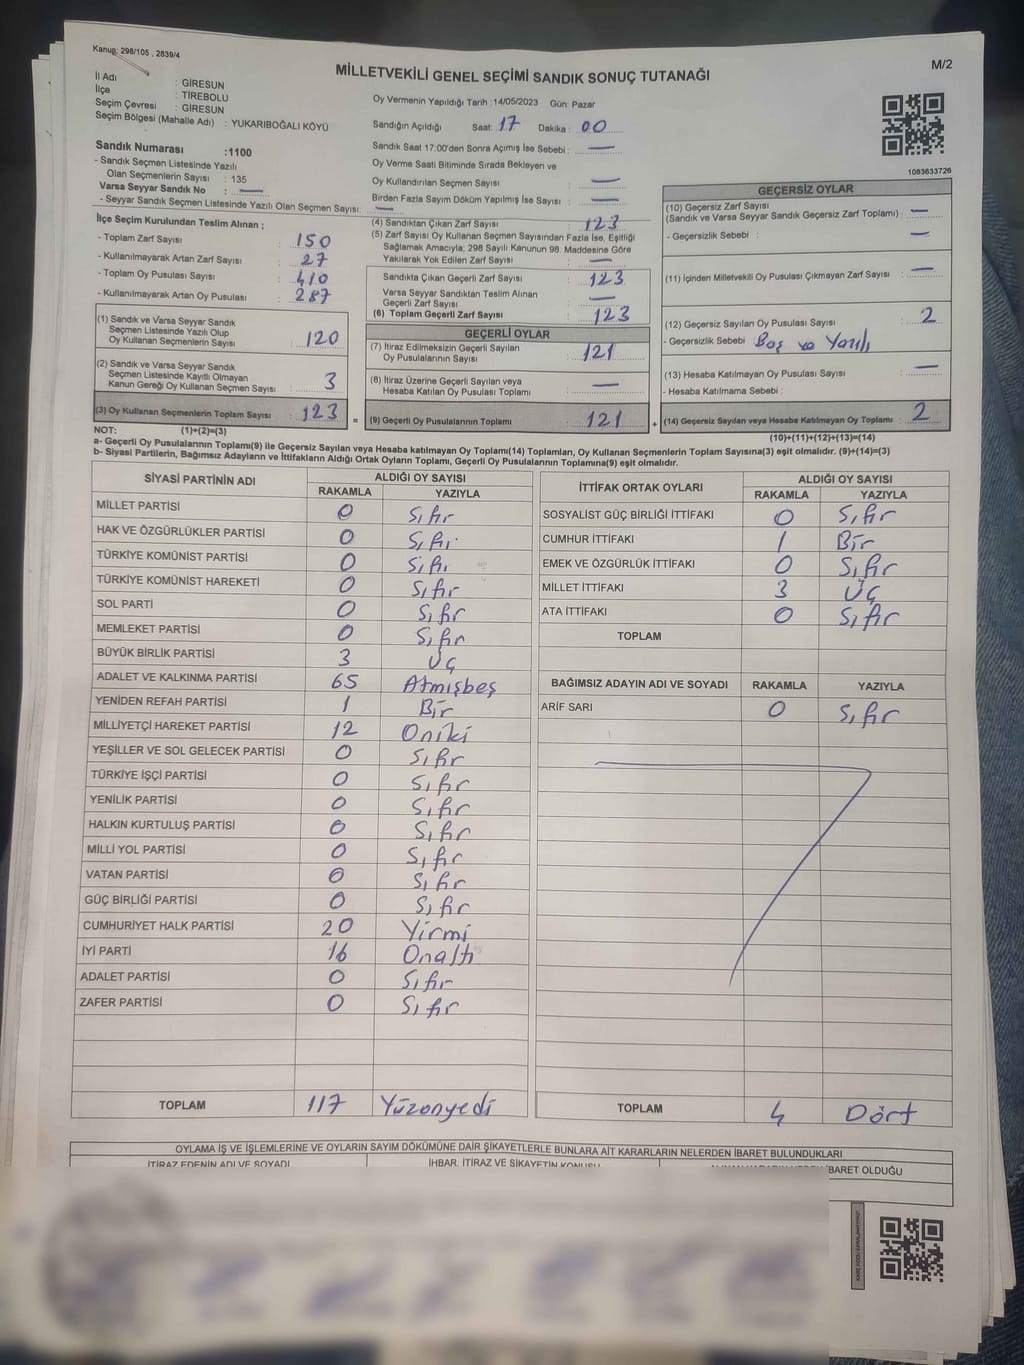 Kanun: 298/105 , 2839/4
MİLLETVEKİLİ GENEL SEÇİMİ SANDIK SONUÇ TUTANAĞI
M/2
İl Adı : GİRESUN
İlçe : TİREBOLU
Seçim Çevresi : GİRESUN
Seçim Bölgesi (Mahalle Adı) : YUKARIBOĞALI KÖYÜ
Oy Vermenin Yapıldığı Tarih : 14/05/2023 Gün: Pazar
Sandığın Açıldığı Saat: 17 Dakika : 00
Sandık Saat 17:00'den Sonra Açımış İse Sebebi : —
Oy Verme Saati Bitiminde Sırada Bekleyen ve
Oy Kullandırılan Seçmen Sayısı : —
Birden Fazla Sayım Döküm Yapılmış İse Sayısı : —
1083633726
Sandık Numarası :1100
- Sandık Seçmen Listesinde Yazılı
Olan Seçmenlerin Sayısı : 135
Varsa Seyyar Sandık No : —
- Seyyar Sandık Seçmen Listesinde Yazılı Olan Seçmen Sayısı: —
İlçe Seçim Kurulundan Teslim Alınan ;
- Toplam Zarf Sayısı : 150
- Kullanılmayarak Artan Zarf Sayısı : 27
- Toplam Oy Pusulası Sayısı : 410
- Kullanılmayarak Artan Oy Pusulası : 287
(1) Sandık ve Varsa Seyyar Sandık
Seçmen Listesinde Yazılı Olup
Oy Kullanan Seçmenlerin Sayısı : 120
(2) Sandık ve Varsa Seyyar Sandık
Seçmen Listesinde Kayıtlı Olmayan
Kanun Gereği Oy Kullanan Seçmen Sayısı : 3
(3) Oy Kullanan Seçmenlerin Toplam Sayısı : 123 =
(4) Sandıktan Çıkan Zarf Sayısı : 123
(5) Zarf Sayısı Oy Kullanan Seçmen Sayısından Fazla İse, Eşitliği
Sağlamak Amacıyla, 298 Sayılı Kanunun 98. Maddesine Göre
Yakılarak Yok Edilen Zarf Sayısı : —
Sandıkta Çıkan Geçerli Zarf Sayısı : 123
Varsa Seyyar Sandıktan Teslim Alınan
Geçerli Zarf Sayısı : —
(6) Toplam Geçerli Zarf Sayısı : 123
GEÇERLİ OYLAR
(7) İtiraz Edilmeksizin Geçerli Sayılan
Oy Pusulalarının Sayısı : 121
(8) İtiraz Üzerine Geçerli Sayılan veya
Hesaba Katılan Oy Pusulası Toplamı : —
(9) Geçerli Oy Pusulalarının Toplamı : 121 +
GEÇERSİZ OYLAR
(10) Geçersiz Zarf Sayısı
(Sandık ve Varsa Seyyar Sandık Geçersiz Zarf Toplamı) : —
- Geçersizlik Sebebi : —
(11) İçinden Milletvekili Oy Pusulası Çıkmayan Zarf Sayısı : —
(12) Geçersiz Sayılan Oy Pusulası Sayısı : 2
- Geçersizlik Sebebi : Boş ve Yazılı
(13) Hesaba Katılmayan Oy Pusulası Sayısı : —
- Hesaba Katılmama Sebebi :
(14) Geçersiz Sayılan veya Hesaba Katılmayan Oy Toplamı : 2
NOT: (1)+(2)=(3)
(10)+(11)+(12)+(13)=(14)
a- Geçerli Oy Pusulalarının Toplamı(9) ile Geçersiz Sayılan veya Hesaba katılmayan Oy Toplamı(14) Toplamları, Oy Kullanan Seçmenlerin Toplam Sayısına(3) eşit olmalıdır. (9)+(14)=(3)
b- Siyasi Partilerin, Bağımsız Adayların ve İttifakların Aldığı Ortak Oyların Toplamı, Geçerli Oy Pusulalarının Toplamına(9) eşit olmalıdır.
SİYASİ PARTİNİN ADI ALDIĞI OY SAYISI
RAKAMLA YAZIYLA
MİLLET PARTİSİ 0 Sıfır
HAK VE ÖZGÜRLÜKLER PARTİSİ 0 Sıfır
TÜRKİYE KOMÜNİST PARTİSİ 0 Sıfır
TÜRKİYE KOMÜNİST HAREKETİ 0 Sıfır
SOL PARTİ 0 Sıfır
MEMLEKET PARTİSİ 0 Sıfır
BÜYÜK BİRLİK PARTİSİ 3 Üç
ADALET VE KALKINMA PARTİSİ 65 Atmışbeş
YENİDEN REFAH PARTİSİ 1 Bir
MİLLİYETÇİ HAREKET PARTİSİ 12 Oniki
YEŞİLLER VE SOL GELECEK PARTİSİ 0 Sıfır
TÜRKİYE İŞÇİ PARTİSİ 0 Sıfır
YENİLİK PARTİSİ 0 Sıfır
HALKIN KURTULUŞ PARTİSİ 0 Sıfır
MİLLİ YOL PARTİSİ 0 Sıfır
VATAN PARTİSİ 0 Sıfır
GÜÇ BİRLİĞİ PARTİSİ 0 Sıfır
CUMHURİYET HALK PARTİSİ 20 Yirmi
İYİ PARTİ 16 Onaltı
ADALET PARTİSİ 0 Sıfır
ZAFER PARTİSİ 0 Sıfır
TOPLAM 117 Yüzonyedi
İTTİFAK ORTAK OYLARI ALDIĞI OY SAYISI
RAKAMLA YAZIYLA
SOSYALİST GÜÇ BİRLİĞİ İTTİFAKI 0 Sıfır
CUMHUR İTTİFAKI 1 Bir
EMEK VE ÖZGÜRLÜK İTTİFAKI 0 Sıfır
MİLLET İTTİFAKI 3 Üç
ATA İTTİFAKI 0 Sıfır
TOPLAM
BAĞIMSIZ ADAYIN ADI VE SOYADI RAKAMLA YAZIYLA
ARİF SARI 0 Sıfır
TOPLAM 4 Dört
OYLAMA İŞ VE İŞLEMLERİNE VE OYLARIN SAYIM DÖKÜMÜNE DAİR ŞİKAYETLERLE BUNLARA AİT KARARLARIN NELERDEN İBARET BULUNDUKLARI
İTİRAZ EDENİN ADI VE SOYADI İHBAR, İTİRAZ VE ŞİKAYETİN KONUSU İBARET OLDUĞU